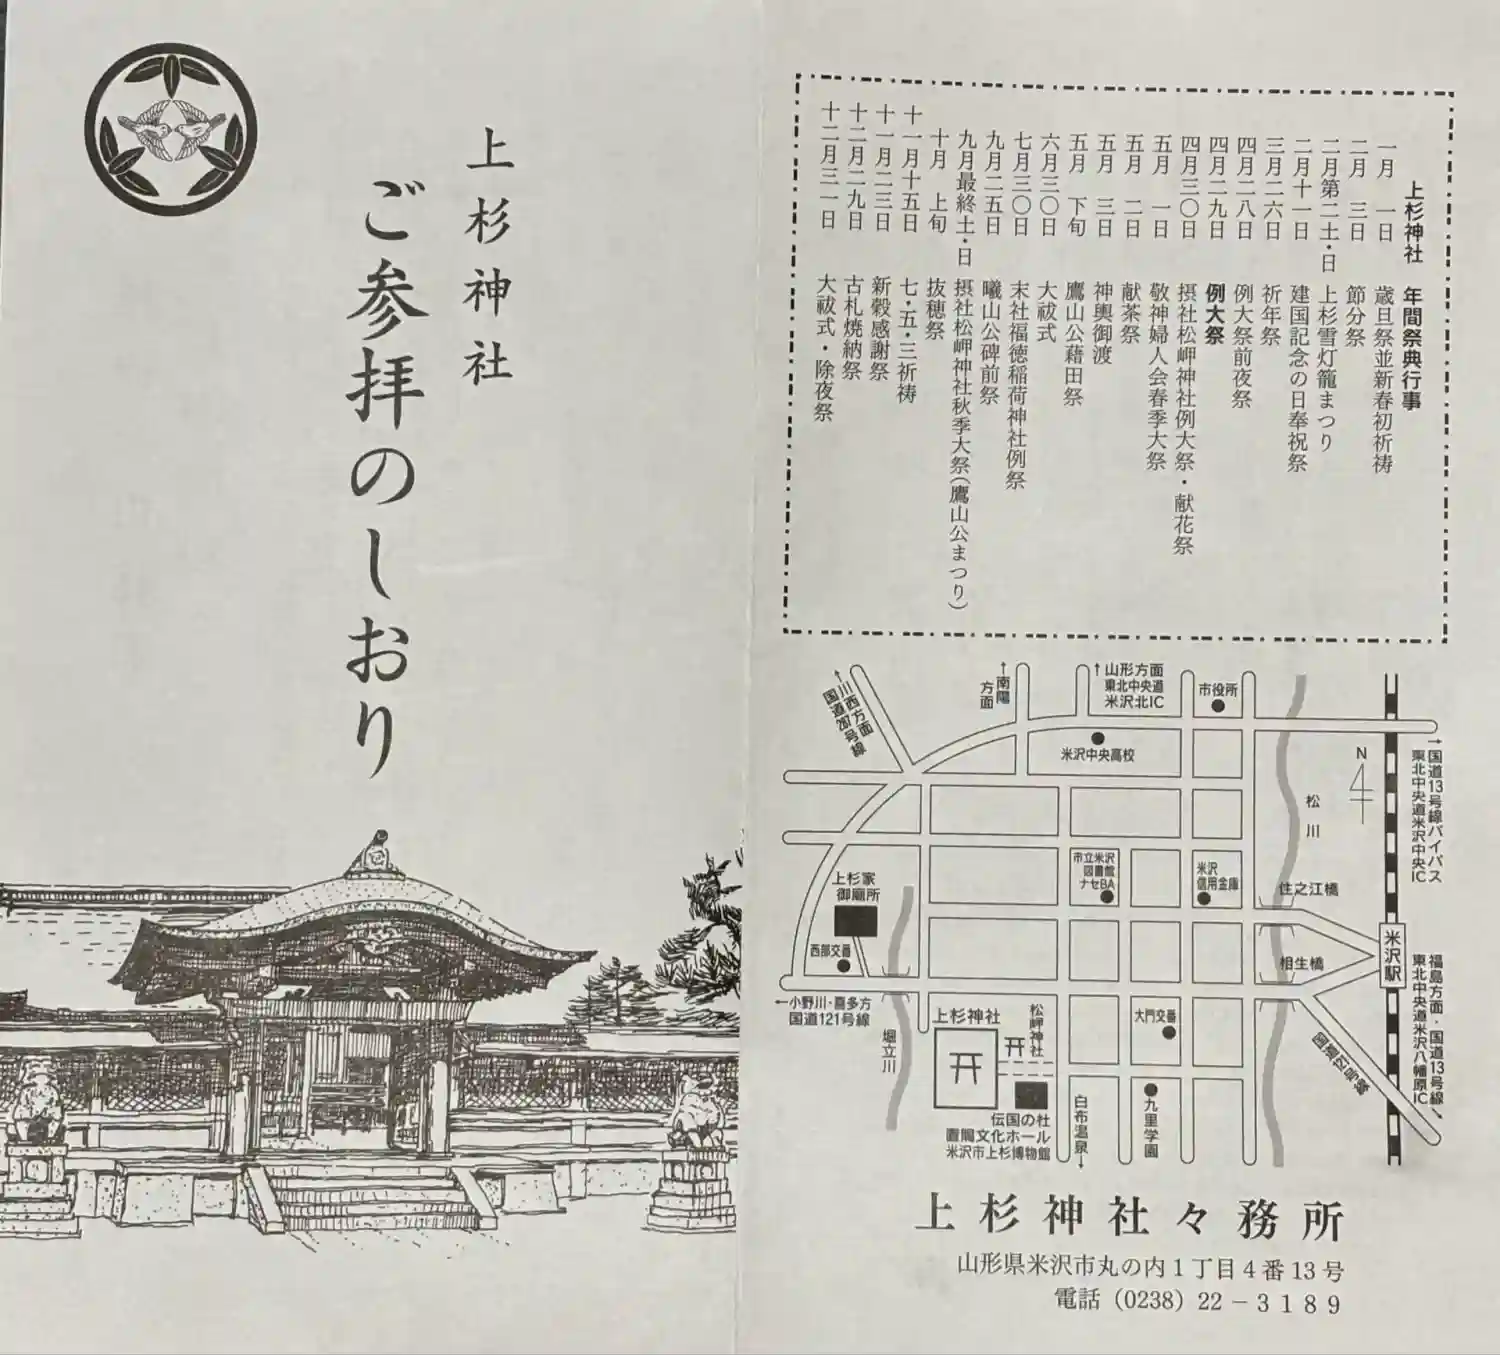 上杉神社
ご参拝のしおり
上杉神社 年間祭典行事
一月 一日 歳旦祭並新春初祈祷
二月 三日 節分祭
二月第二土・日 上杉雪灯籠まつり
二月十一日 建国記念の日奉祝祭
三月二六日 祈年祭
四月二八日 例大祭前夜祭
四月二九日 例大祭
四月三〇日 摂社松岬神社例大祭・献花祭
五月 一日 敬神婦人会春季大祭
五月 二日 献茶祭
五月 三日 神輿御渡
五月 下旬 鷹山公藉田祭
六月三〇日 大祓式
七月三〇日 末社福徳稲荷神社例祭
九月二五日 曦山公碑前祭
九月最終土・日 摂社松岬神社秋季大祭(鷹山公まつり)
十月 上旬 抜穂祭
十一月十五日 七・五・三祈祷
十一月二三日 新穀感謝祭
十二月二九日 古札焼納祭
十二月三一日 大祓式・除夜祭
↑川西方面
国道287号線
↑南陽
方面
↑山形方面
東北中央道
米沢北IC
市役所
米沢中央高校
N
松川
→国道13号線バイパス
東北中央道米沢中央IC
市立米沢
図書館
ナセBA
米沢
信用金庫
住之江橋
上杉家
御廟所
西部交番
相生橋
米沢駅
福島方面・国道13号線→
東北中央道米沢八幡原IC
←小野川・喜多方
国道121号線
堀立川
上杉神社
松岬神社
大門交番
国道13号線
伝国の杜
置賜文化ホール
米沢市上杉博物館
白布温泉→
九里学園
上杉神社々務所
山形県米沢市丸の内1丁目4番13号
電話（0238）22－3189